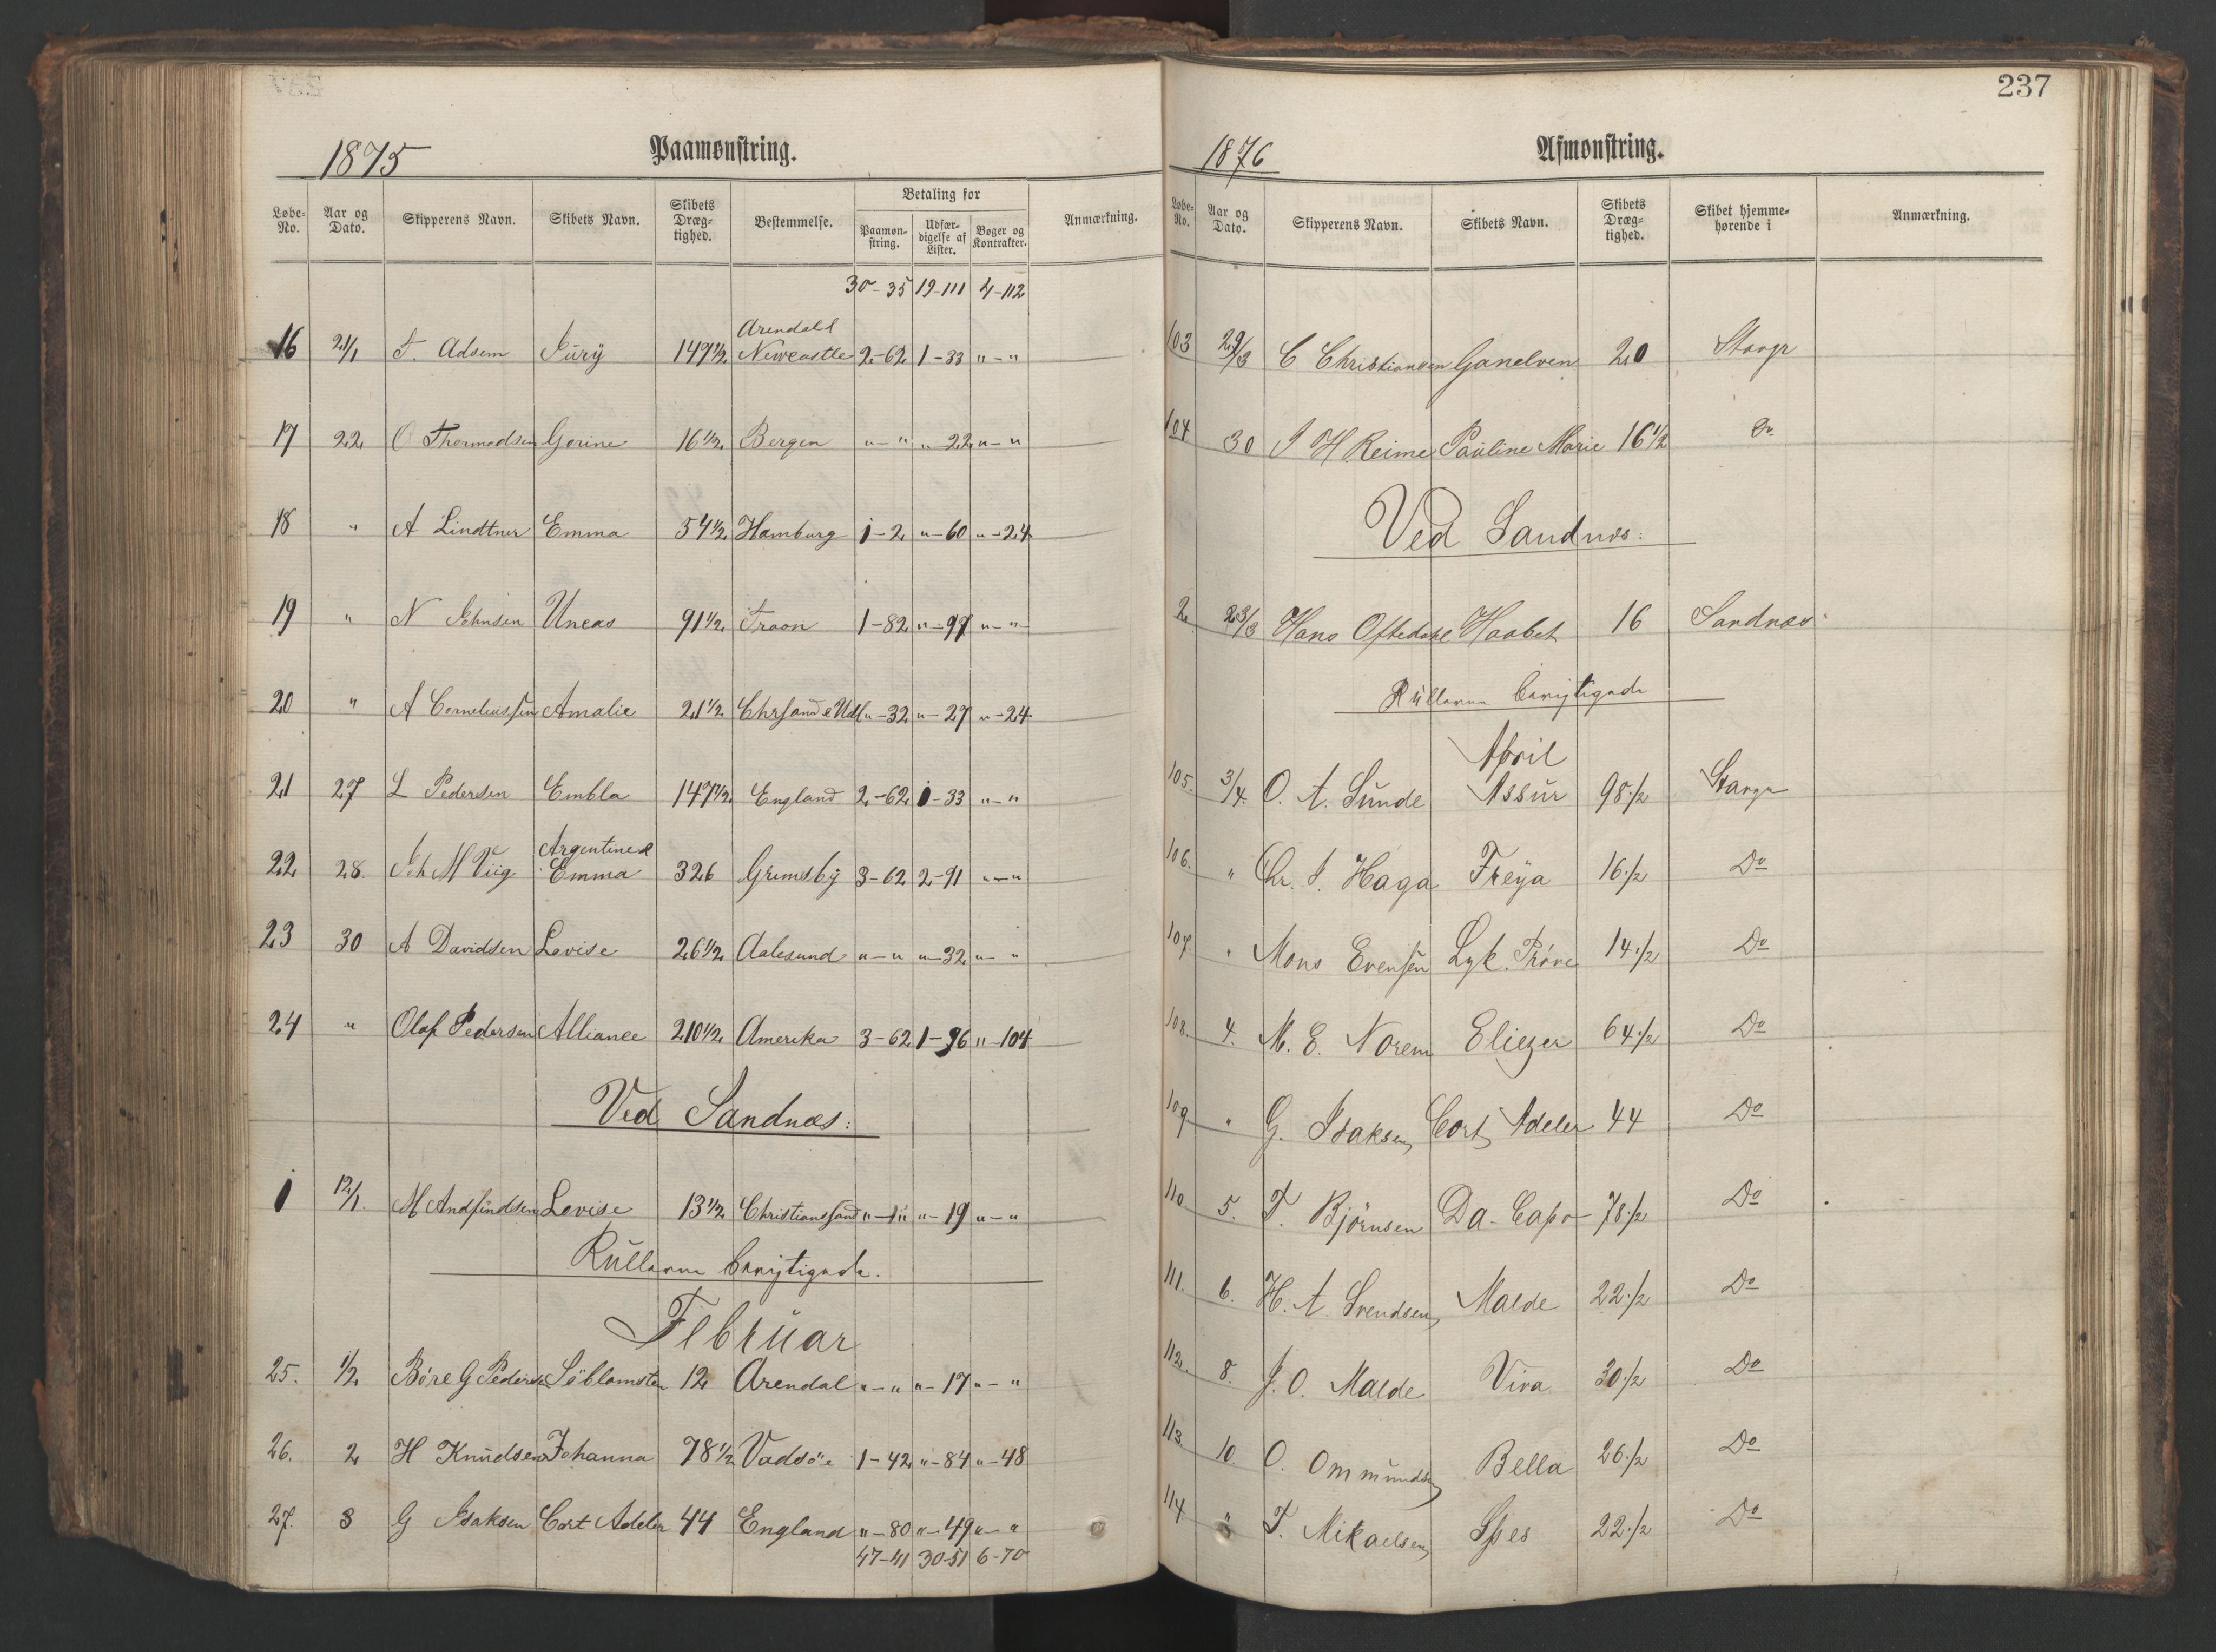 237
1875 Paamønstring.
Løbe-No. Aar og Dato. Skipperens Navn. Skibets Navn. Skibets Dræg-tighed. Bestemmelse. Betaling for Paamøn-string. Udfær-digelse af Lister. Bøger og Kontrakter. Anmærkning.
30-35 19-111 4-112
Arendal &
16 21/1 T. Adsem Jury 147 1/2 Newcastle 2-62 1-33 "-"
17 22 O Thormodsen Gorine 16 1/2 Bergen "-" "-22 "-"
18 " A Lindtner Emma 54 1/2 Hamburg 1-2 "-60 "-24
19 " N Johnsen Uneas 91 1/2 Troon 1-82 "-97 "-"
20 " A Corneliussen Amalie 21 1/2 Chrsand & Udl "-32 "-27 "-24
21 27 L Pedersen Embla 147 1/2 England 2-62 1-33 "-"
Argentine &
22 28. Joh M Viig Emma 326 Grimsby 3-62 2-91 "-"
23 30 A Davidsen Lovise 26 1/2 Aalesund "-" "-32 "-"
24 " Olaf Pedersen Alliance 210 1/2 Amerika 3-62 1-96 "-104
Ved Sandnæs:
1 12/1. M Andfindsen Lovise 13 1/2 Christianssand "-" "-19 "-"
Rullerne
Februar
25. 1/2 Børe G Pedersen Söblomsten 12 Arendal "-" "-17 "-"
26. 2 H Knudsen Johanna 78 1/2 Vadsöe 1-42 "-84 "-48
27. 3 G Isaksen Cort Adeler 44 England "-80 "-49 "-"
47-41 30-51 6-70
1876 Afmønstring.
Løbe-No. Aar og Dato. Skipperens Navn. Skibets Navn. Skibets Dræg-tighed. Skibet hjemme-hørende i Anmærkning.
103 29/3 C Christiansen Ganelven 20 Stavgr
104 30 J H Reime Pauline Marie 16 1/2 Do
Ved Sandnæs:
2 23/3 Hans Oftedahl Haabet 16 Sandnæs
Rullerne
April
105. 3/4. O. A. Sunde Assur 98 1/2 Stavgr
106. " Chr. J. Haga Freya 16 1/2 Do
107. " Mons Evensen Lyk. Prøve 14 1/2 Do
108. 4. M. E. Norem Eliezer 64 1/2 Do
109 " G. Isaksen Cort Adeler 44 Do
110 5. T. Björnsen Da-Capo 78 1/2 Do
111. 6. H. A. Svendsen Malde 22 1/2 Do
112. 8. J. O. Malde Viva 30 1/2 Do
113. 10. O. Ommundsen Bella 26 1/2 Do
114 " T. Mikaelsen Spes 22 1/2 Do